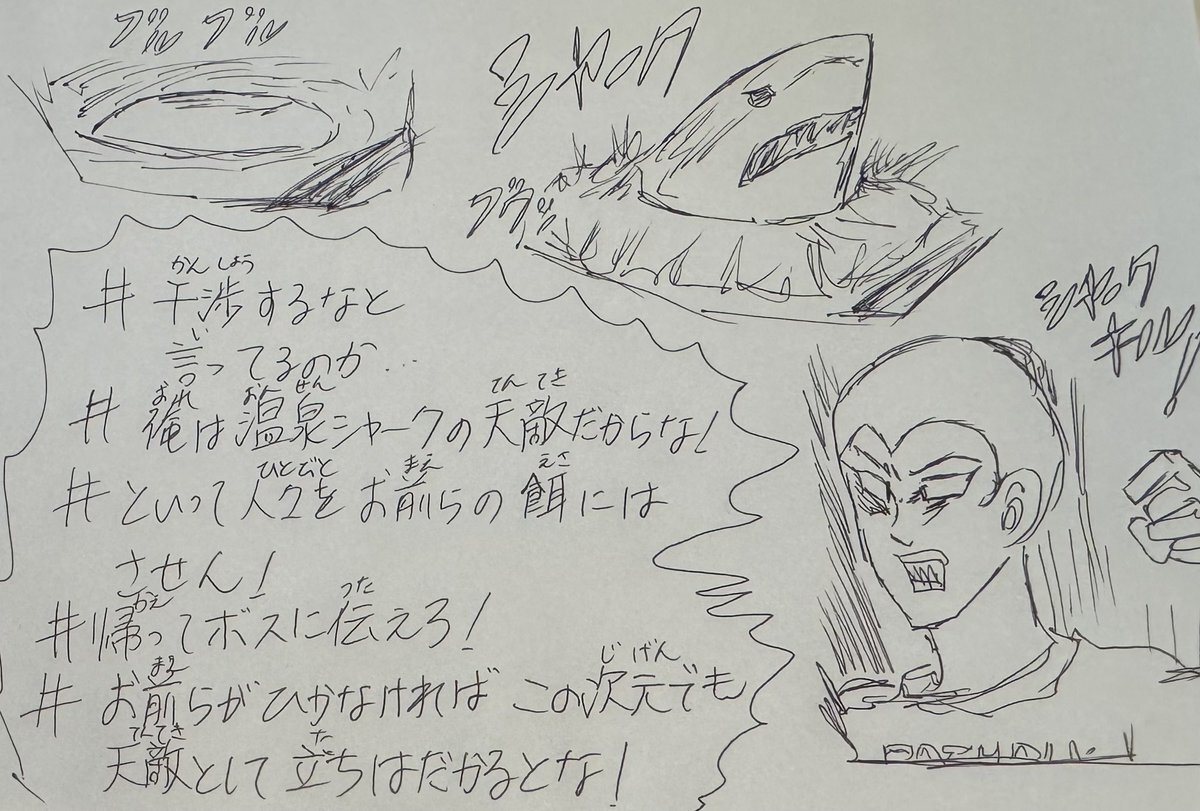 ブルブル
シャック
ブクブ
シャック
キル!
# 干渉するなと
言ってるのか…
# 俺は温泉シャークの天敵だからな!
# といって人々をお前らの餌には
させん!
# 帰ってボスに伝えろ!
# お前らがひかなければこの次元でも
天敵として立ちはだかるとな!